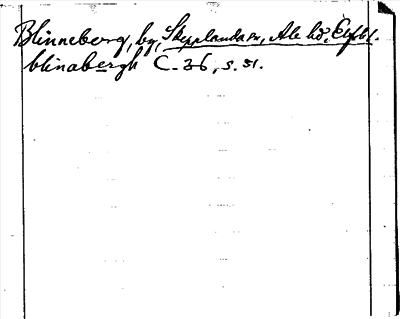 Blinneberg, by, Skepplanda sn, Ale hd, Elfsb l.
blinabergh C. 26, s. 51.